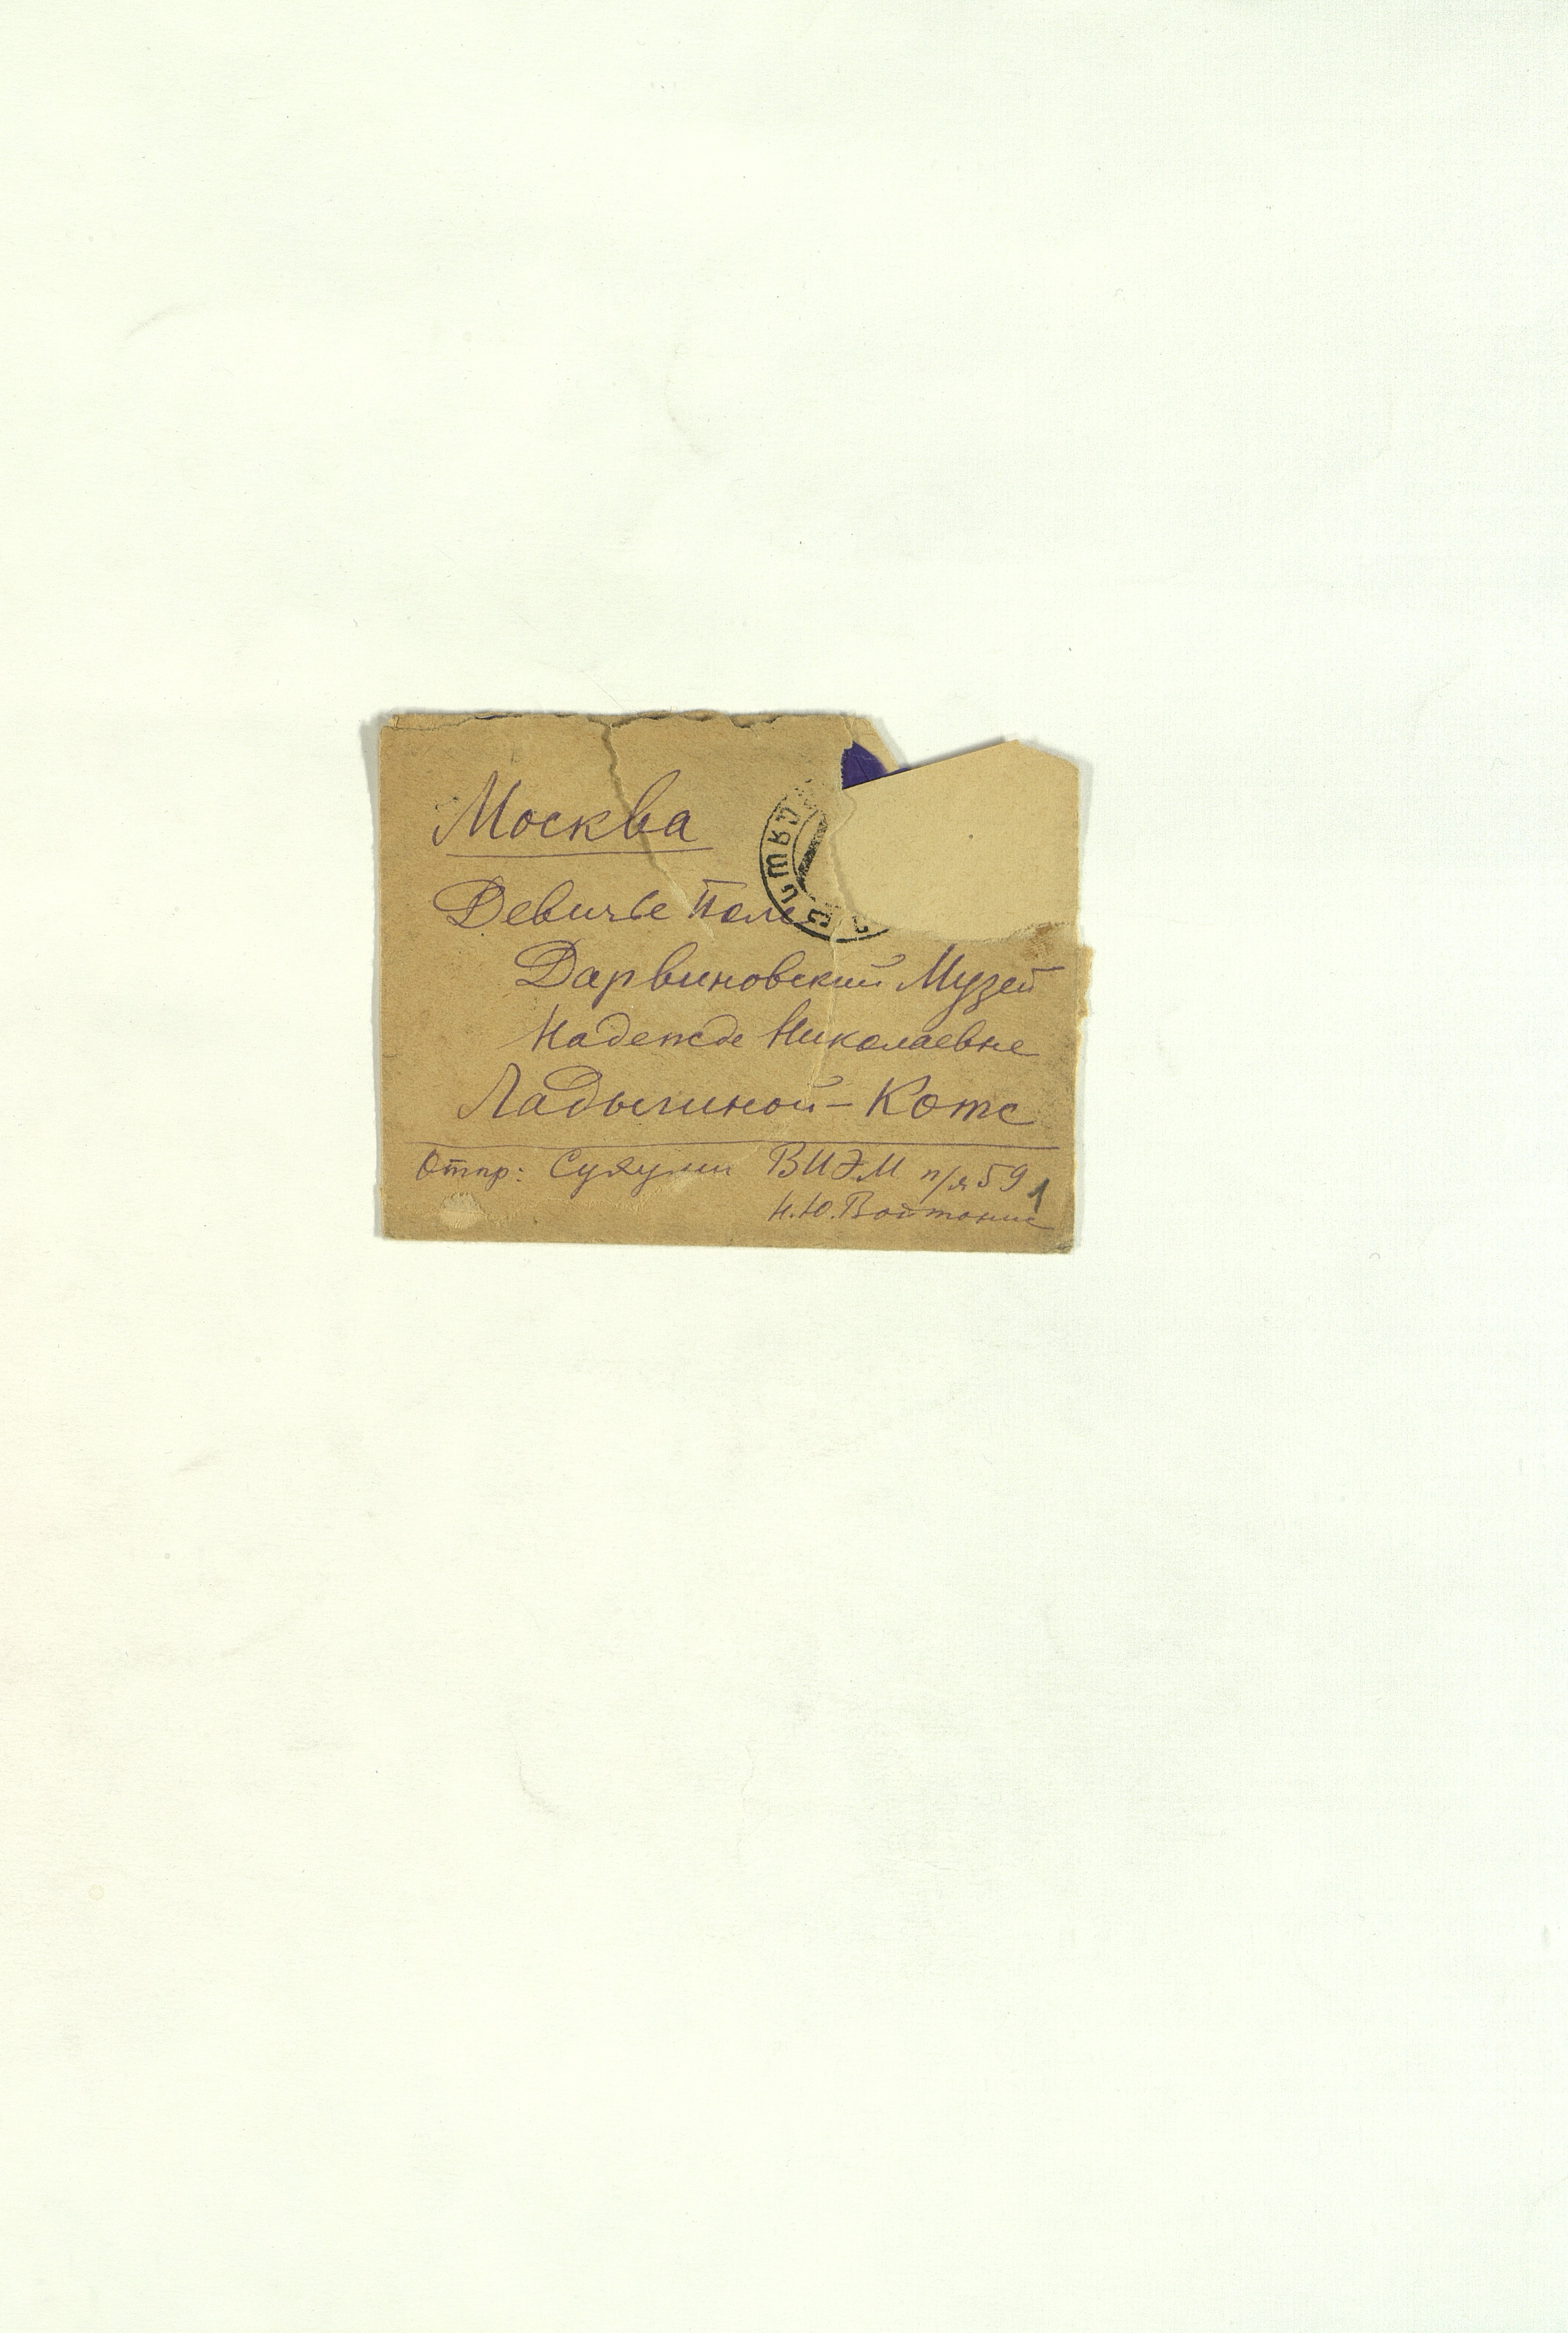 Москва
Девичье Поле
Дарвиновский Музей
Надежде Николаевне
Ладыгиной-Котс
Отпр: Сухуми ВИЭМ п/я 59
Н.Ю. Войтонис
1